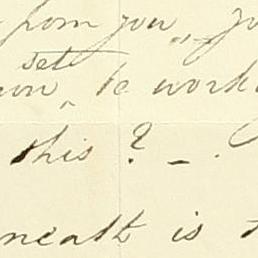 from you
set
to work
this? –.
neath is